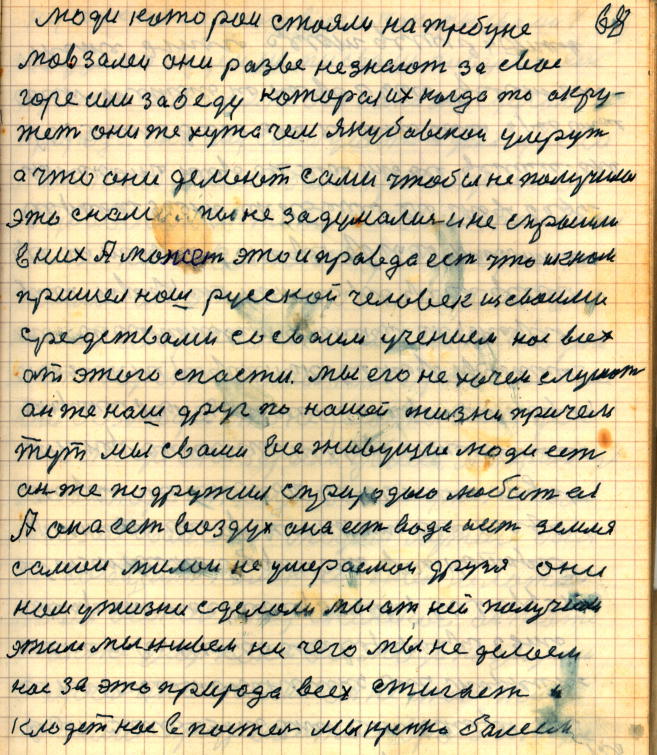 68
люди которои стояли на трибуне
мовзолеи они разве незнают за свое
горе или за беду котораи их когда то окру-
жет они же хужа чем Якубовскои умрут
а что они делоют сами чтобы не получило
это снами мы не задумались и не спросили
в них А может это и правда ест что к нам
пришел наш русской человек исвоими
средствами со своим учением нас всех
от этого спасти. мы его не хочем слушот
он же наш друг по нашей жизни причем
тут мы свами все живущии люди ест
он же подружил сприродою любител
А она ест воздух она ест вода ест земля
самои милои не умераемои друзя они
нам ужизни сделоли мы от ней получили
этим мы живем ни чего мы не делоем
нас за это природа всех стигает и
кладет нас в постел мы крепко болеем